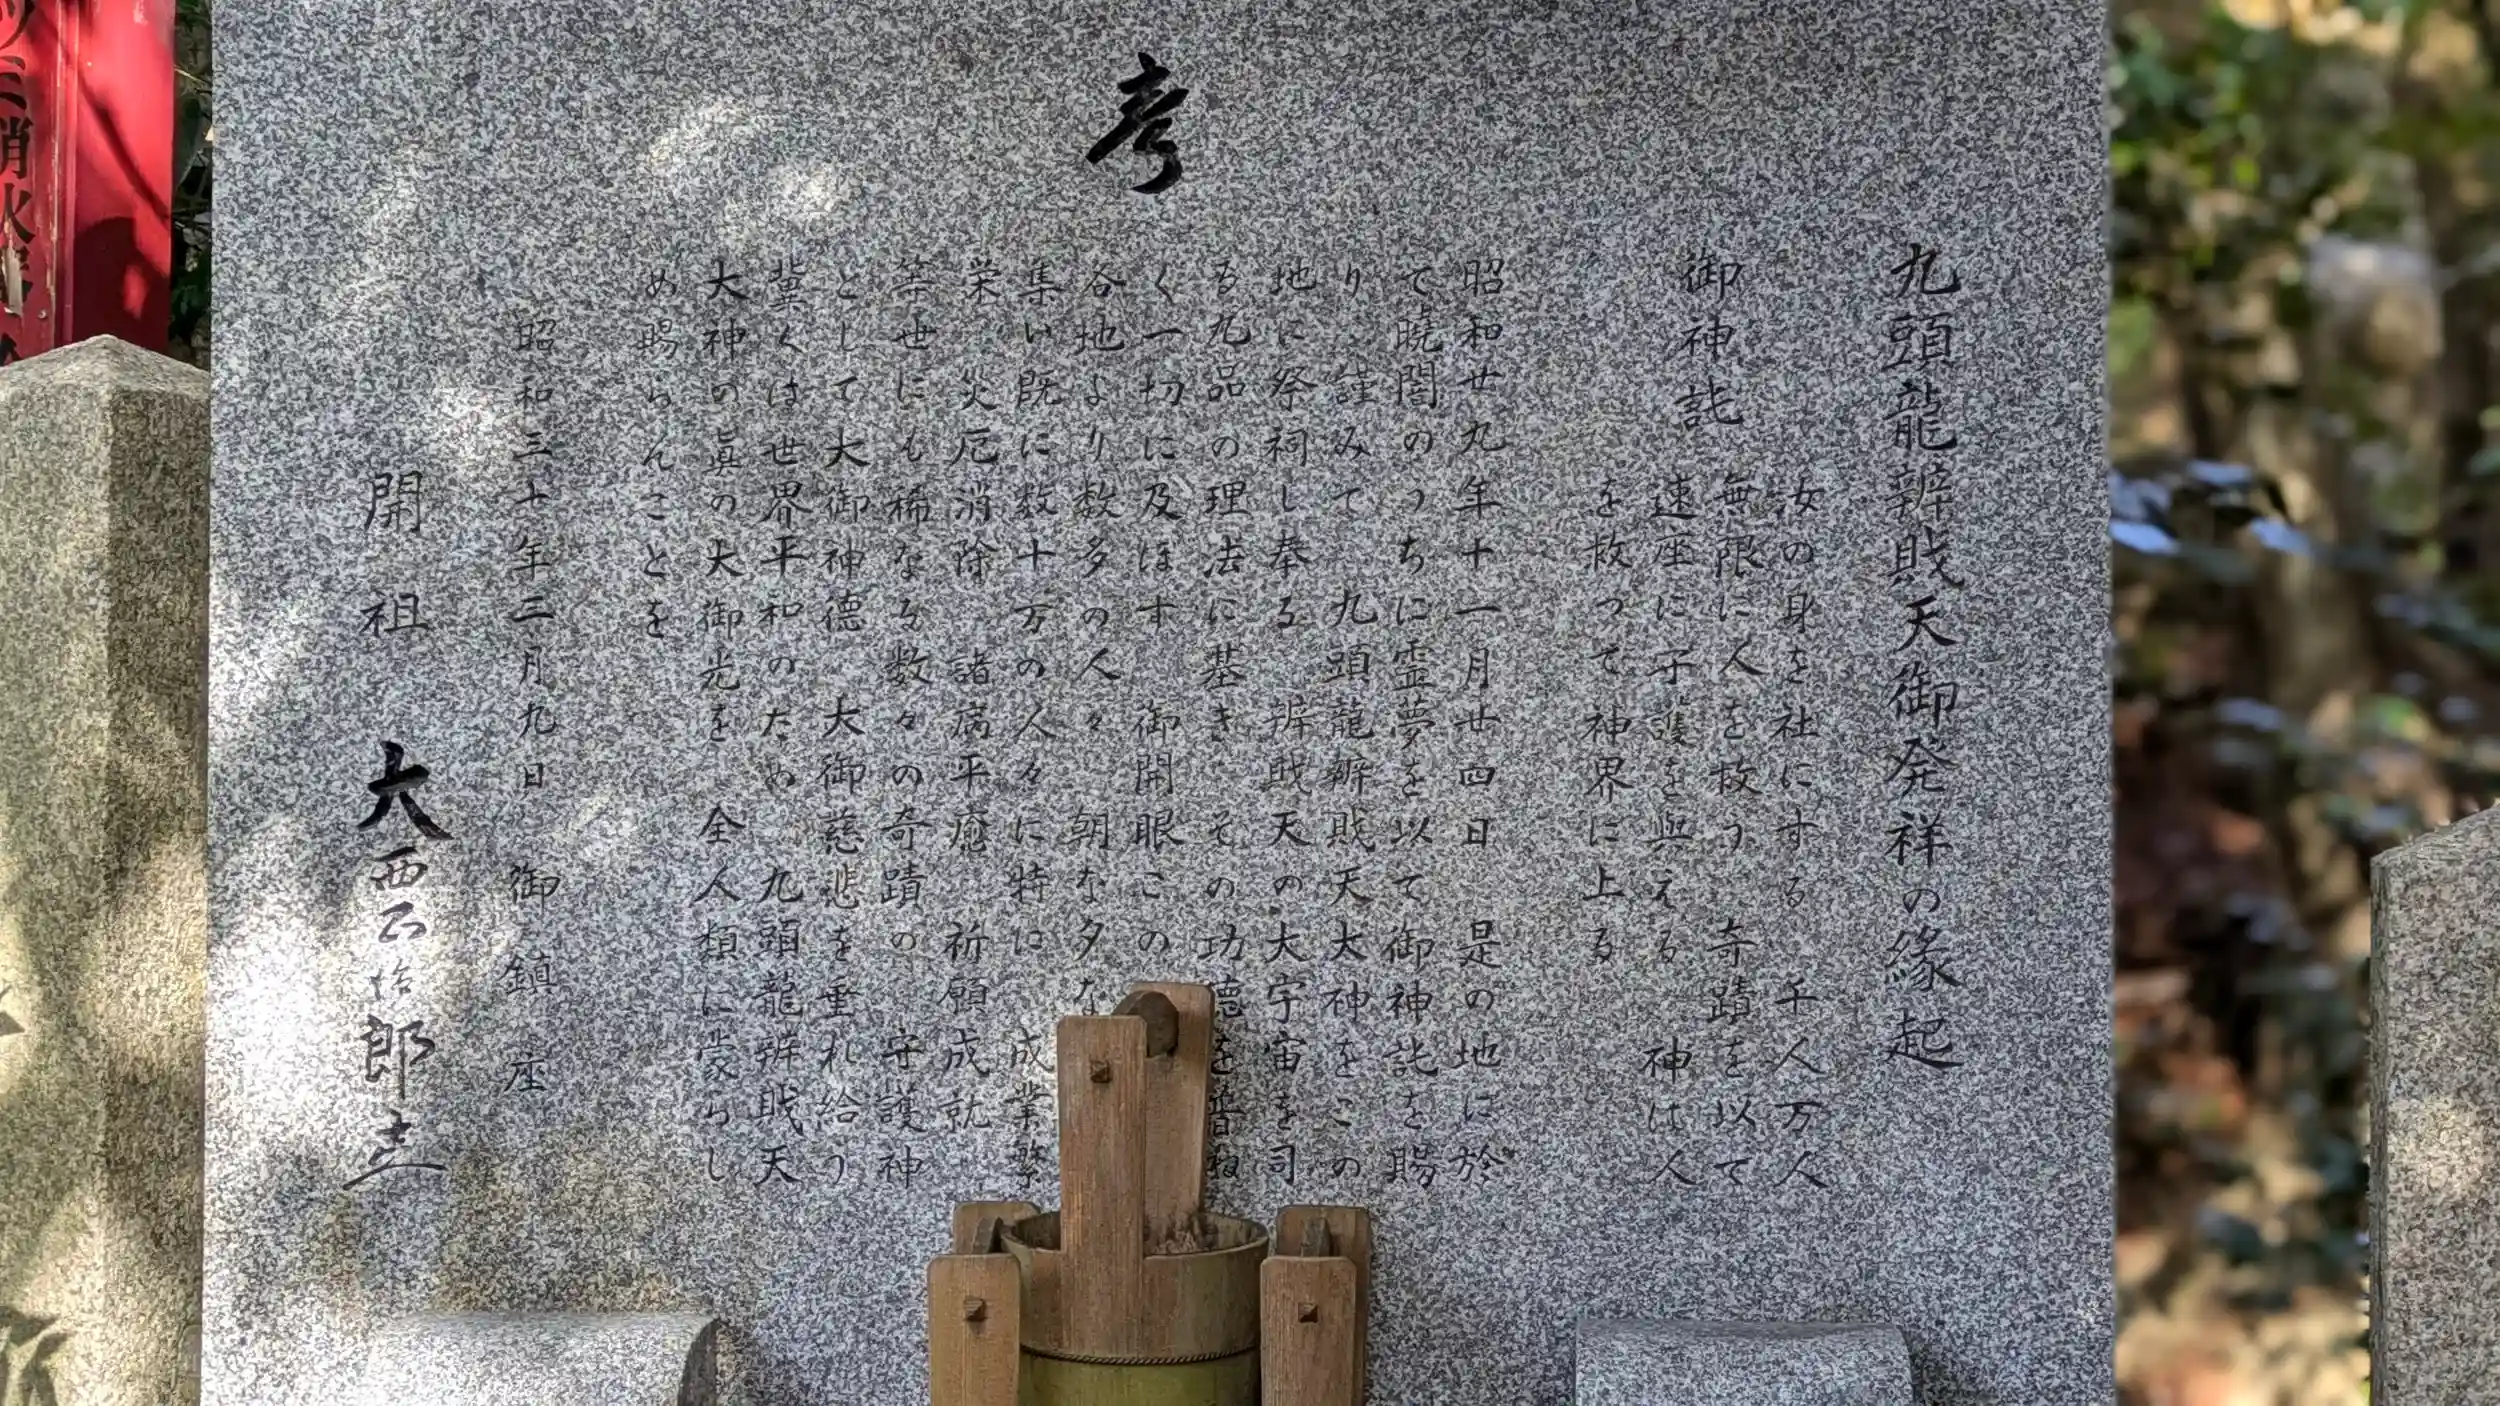 九頭龍辨戝天御発祥の縁起
御神託
汝の身を社にする 千人万人
無限に人を救う 奇蹟を以て
速座に守護を與える 神は人
を救って神界に上る
昭和廿九年十一月廿四日 是の地に於
て暁闇のうちに霊夢を以て御神託を賜
り 謹みて 九頭龍辨戝天大神をこの
地に祭祠し奉る 辨戝天の大宇宙を司
る九品の理法に基き その功徳を普ね
く一切に及ぼす 御開眼この
各地より数多の人々 朝な夕な
集い既に数十万の人々に特に 成業繁
栄 災厄消除 諸病平癒 祈願成就
等世にも稀なる数々の奇蹟の 守護神
として大御神徳 大御慈悲を垂れ給う
冀くは世界平和のため 九頭龍辨戝天
大神の眞の大御光を 全人類に蒙らし
め賜らんことを
昭和三十年三月九日 御鎮座
開祖 大西正治郎